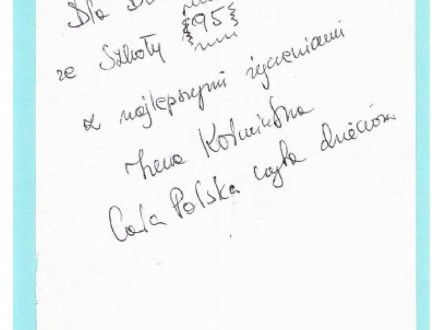 Dla
ze Szkoły 95
z najlepszymi życzeniami
Irena Koźmińska
Cała Polska czyta dzieciom